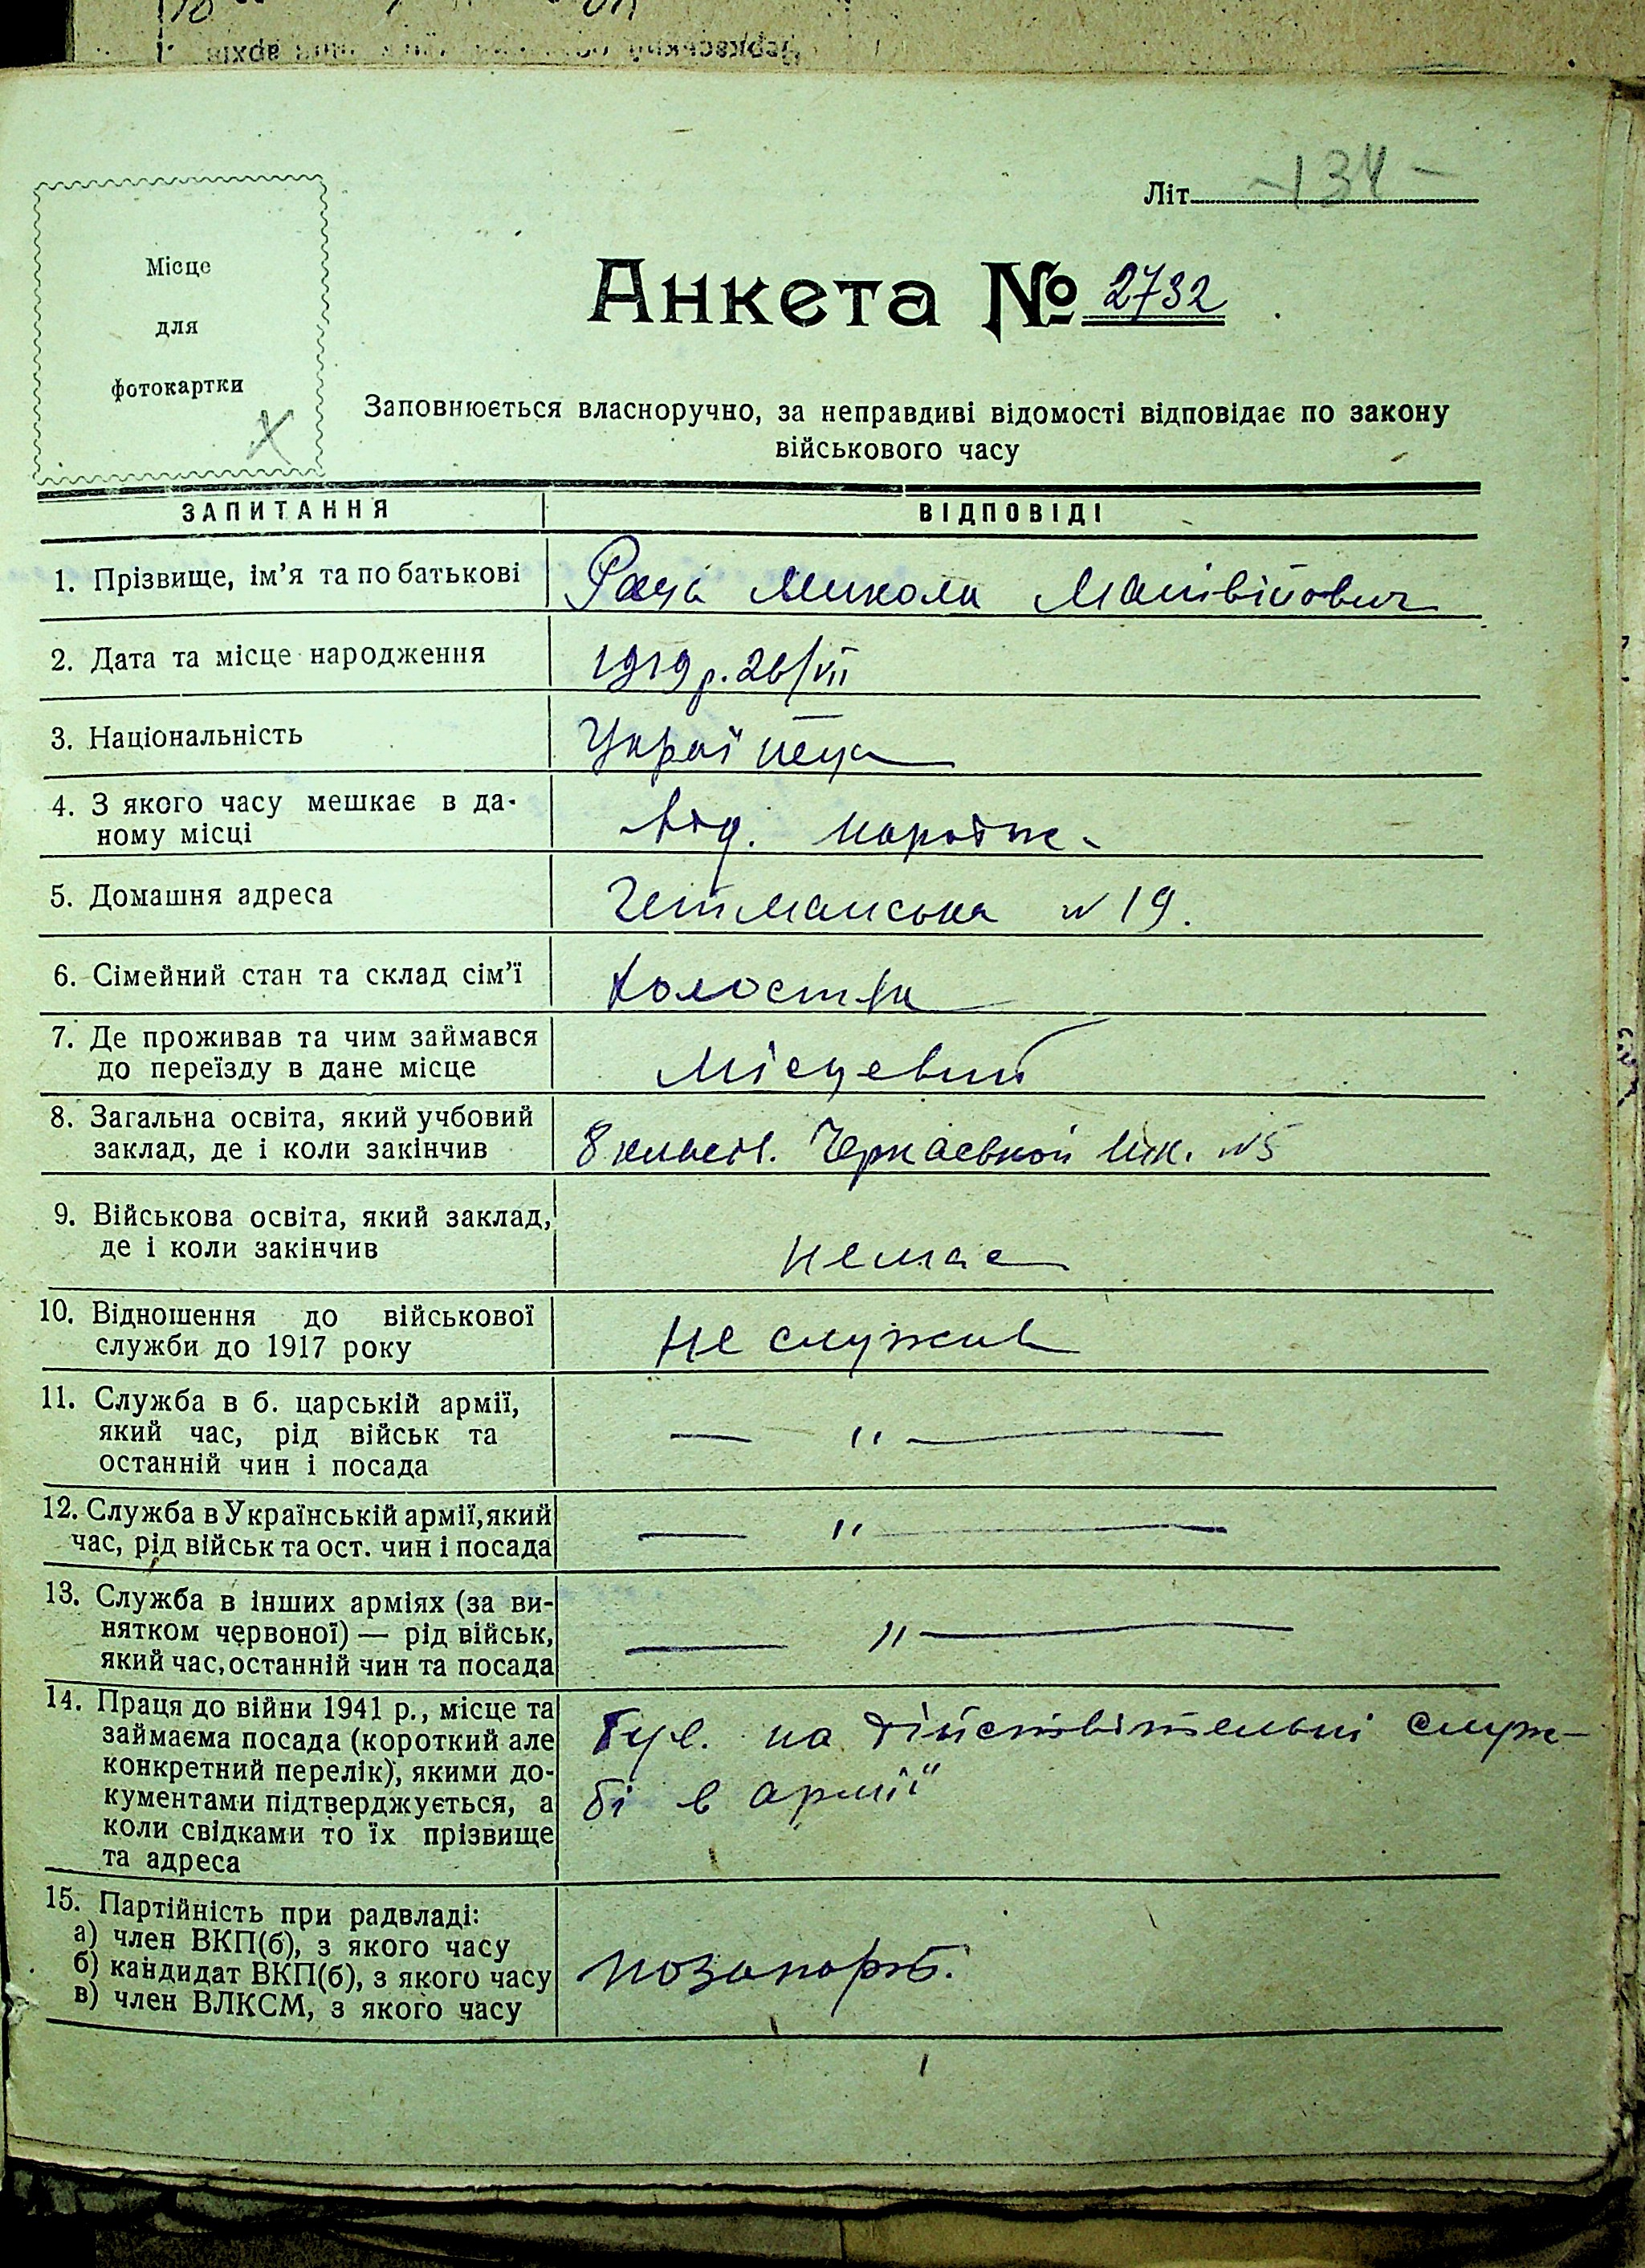 Літ. -134-
Місце
для
фотокартки
Анкета № 2732
Заповнюється власноручно, за неправдиві відомості відповідає по закону
військового часу
ЗАПИТАННЯ ВІДПОВІДІ
1. Прізвище, ім'я та по батькові Микола Матвійович
2. Дата та місце народження 1919 р. 26/VII
3. Національність Українець
4. З якого часу мешкає в да-
ному місці Від. народж.
5. Домашня адреса Гетманська № 19.
6. Сімейний стан та склад сім'ї Холостяк
7. Де проживав та чим займався
до переїзду в дане місце Місцевий
8. Загальна освіта, який учбовий
заклад, де і коли закінчив 8 класів. Черкаської шк. №5
9. Військова освіта, який заклад,
де і коли закінчив немає
10. Відношення до військової
служби до 1917 року Не служив
11. Служба в б. царській армії,
який час, рід військ та
останній чин і посада — " —
12. Служба в Українській армії, який
час, рід військ та ост. чин і посада — " —
13. Служба в інших арміях (за ви-
нятком червоної) — рід військ,
який час, останній чин та посада — " —
14. Праця до війни 1941 р., місце та
займаєма посада (короткий але
конкретний перелік), якими до-
кументами підтверджується, а
коли свідками то їх прізвище
та адреса
Був. на дійствітельні служ-
бі в армії
15. Партійність при радвладі:
а) член ВКП(б), з якого часу
б) кандидат ВКП(б), з якого часу
в) член ВЛКСМ, з якого часу
позапарт.